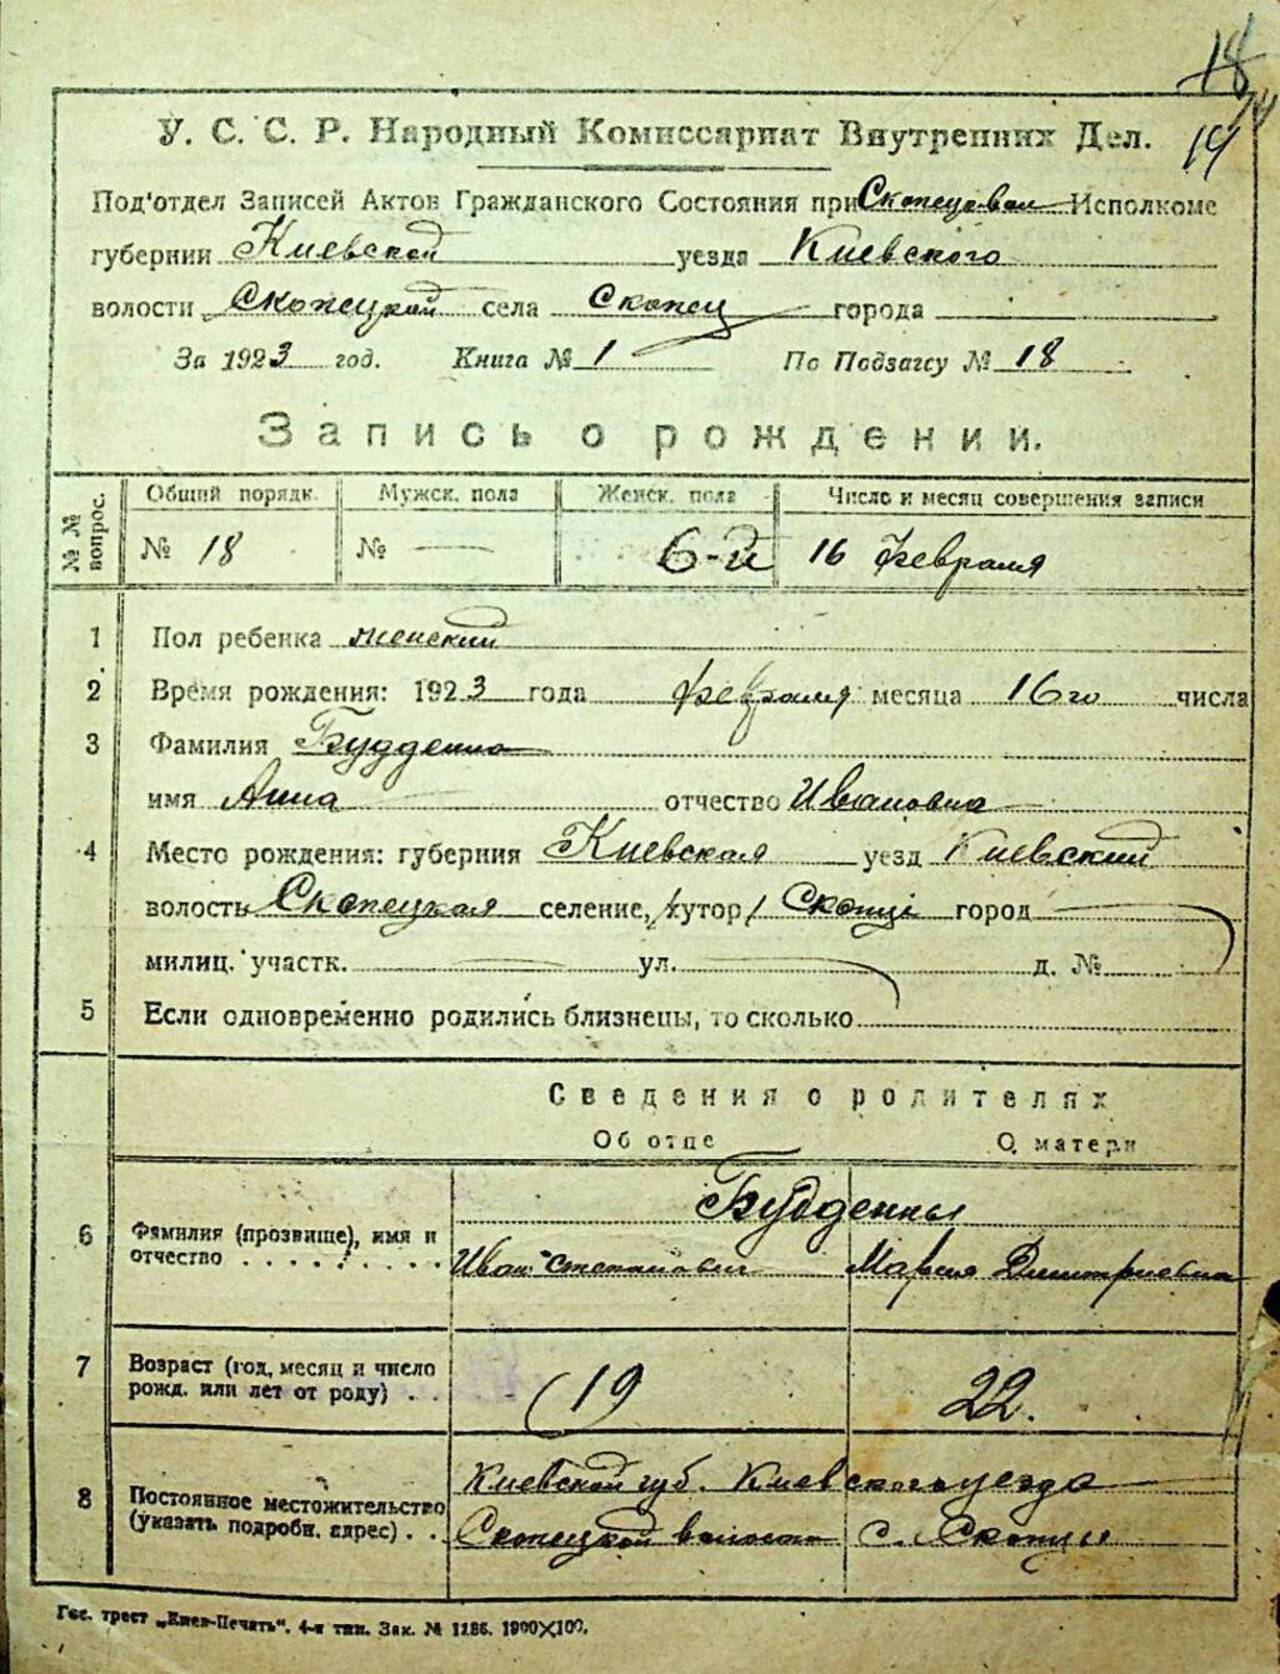 18
14
У. С. С. Р. Народный Комиссариат Внутренних Дел.
Под'отдел Записей Актов Гражданского Состояния при Скопецком Исполкоме
губернии Киевской уезда Киевского
волости Скопецкой села Скопец города
За 1923 год. Книга № 1 По Подзагсу № 18
Запись о рождении.
№№ вопрос. Общий порядк. Мужск. пола Женск. пола Число и месяц совершения записи
№ 18 № — 6-й 16 февраля
1 Пол ребенка женский
2 Время рождения: 1923 года февраля месяца 16го числа
3 Фамилия Будденна
имя Анна отчество Ивановна
4 Место рождения: губерния Киевская уезд Киевский
волость Скопецкая селение, /хутор/ Скопці город
милиц. участк. ул. д. №
5 Если одновременно родились близнецы, то сколько
Сведения о родителях
Об отце О матери
Будденны
6 Фамилия (прозвище), имя и
отчество . . . . . . . . . Иван Степанович Мария Димитриевна
7 Возраст (год, месяц и число
рожд. или лет от роду) . . 19 22.
8 Постоянное местожительство
(указать подробн. адрес) . .
Киевской губ. Киевского уезда
Скопецкой волости с. Скопцы
Гос. трест „Киев-Печать". 4-я тип. Зак. № 1186. 1900×100.